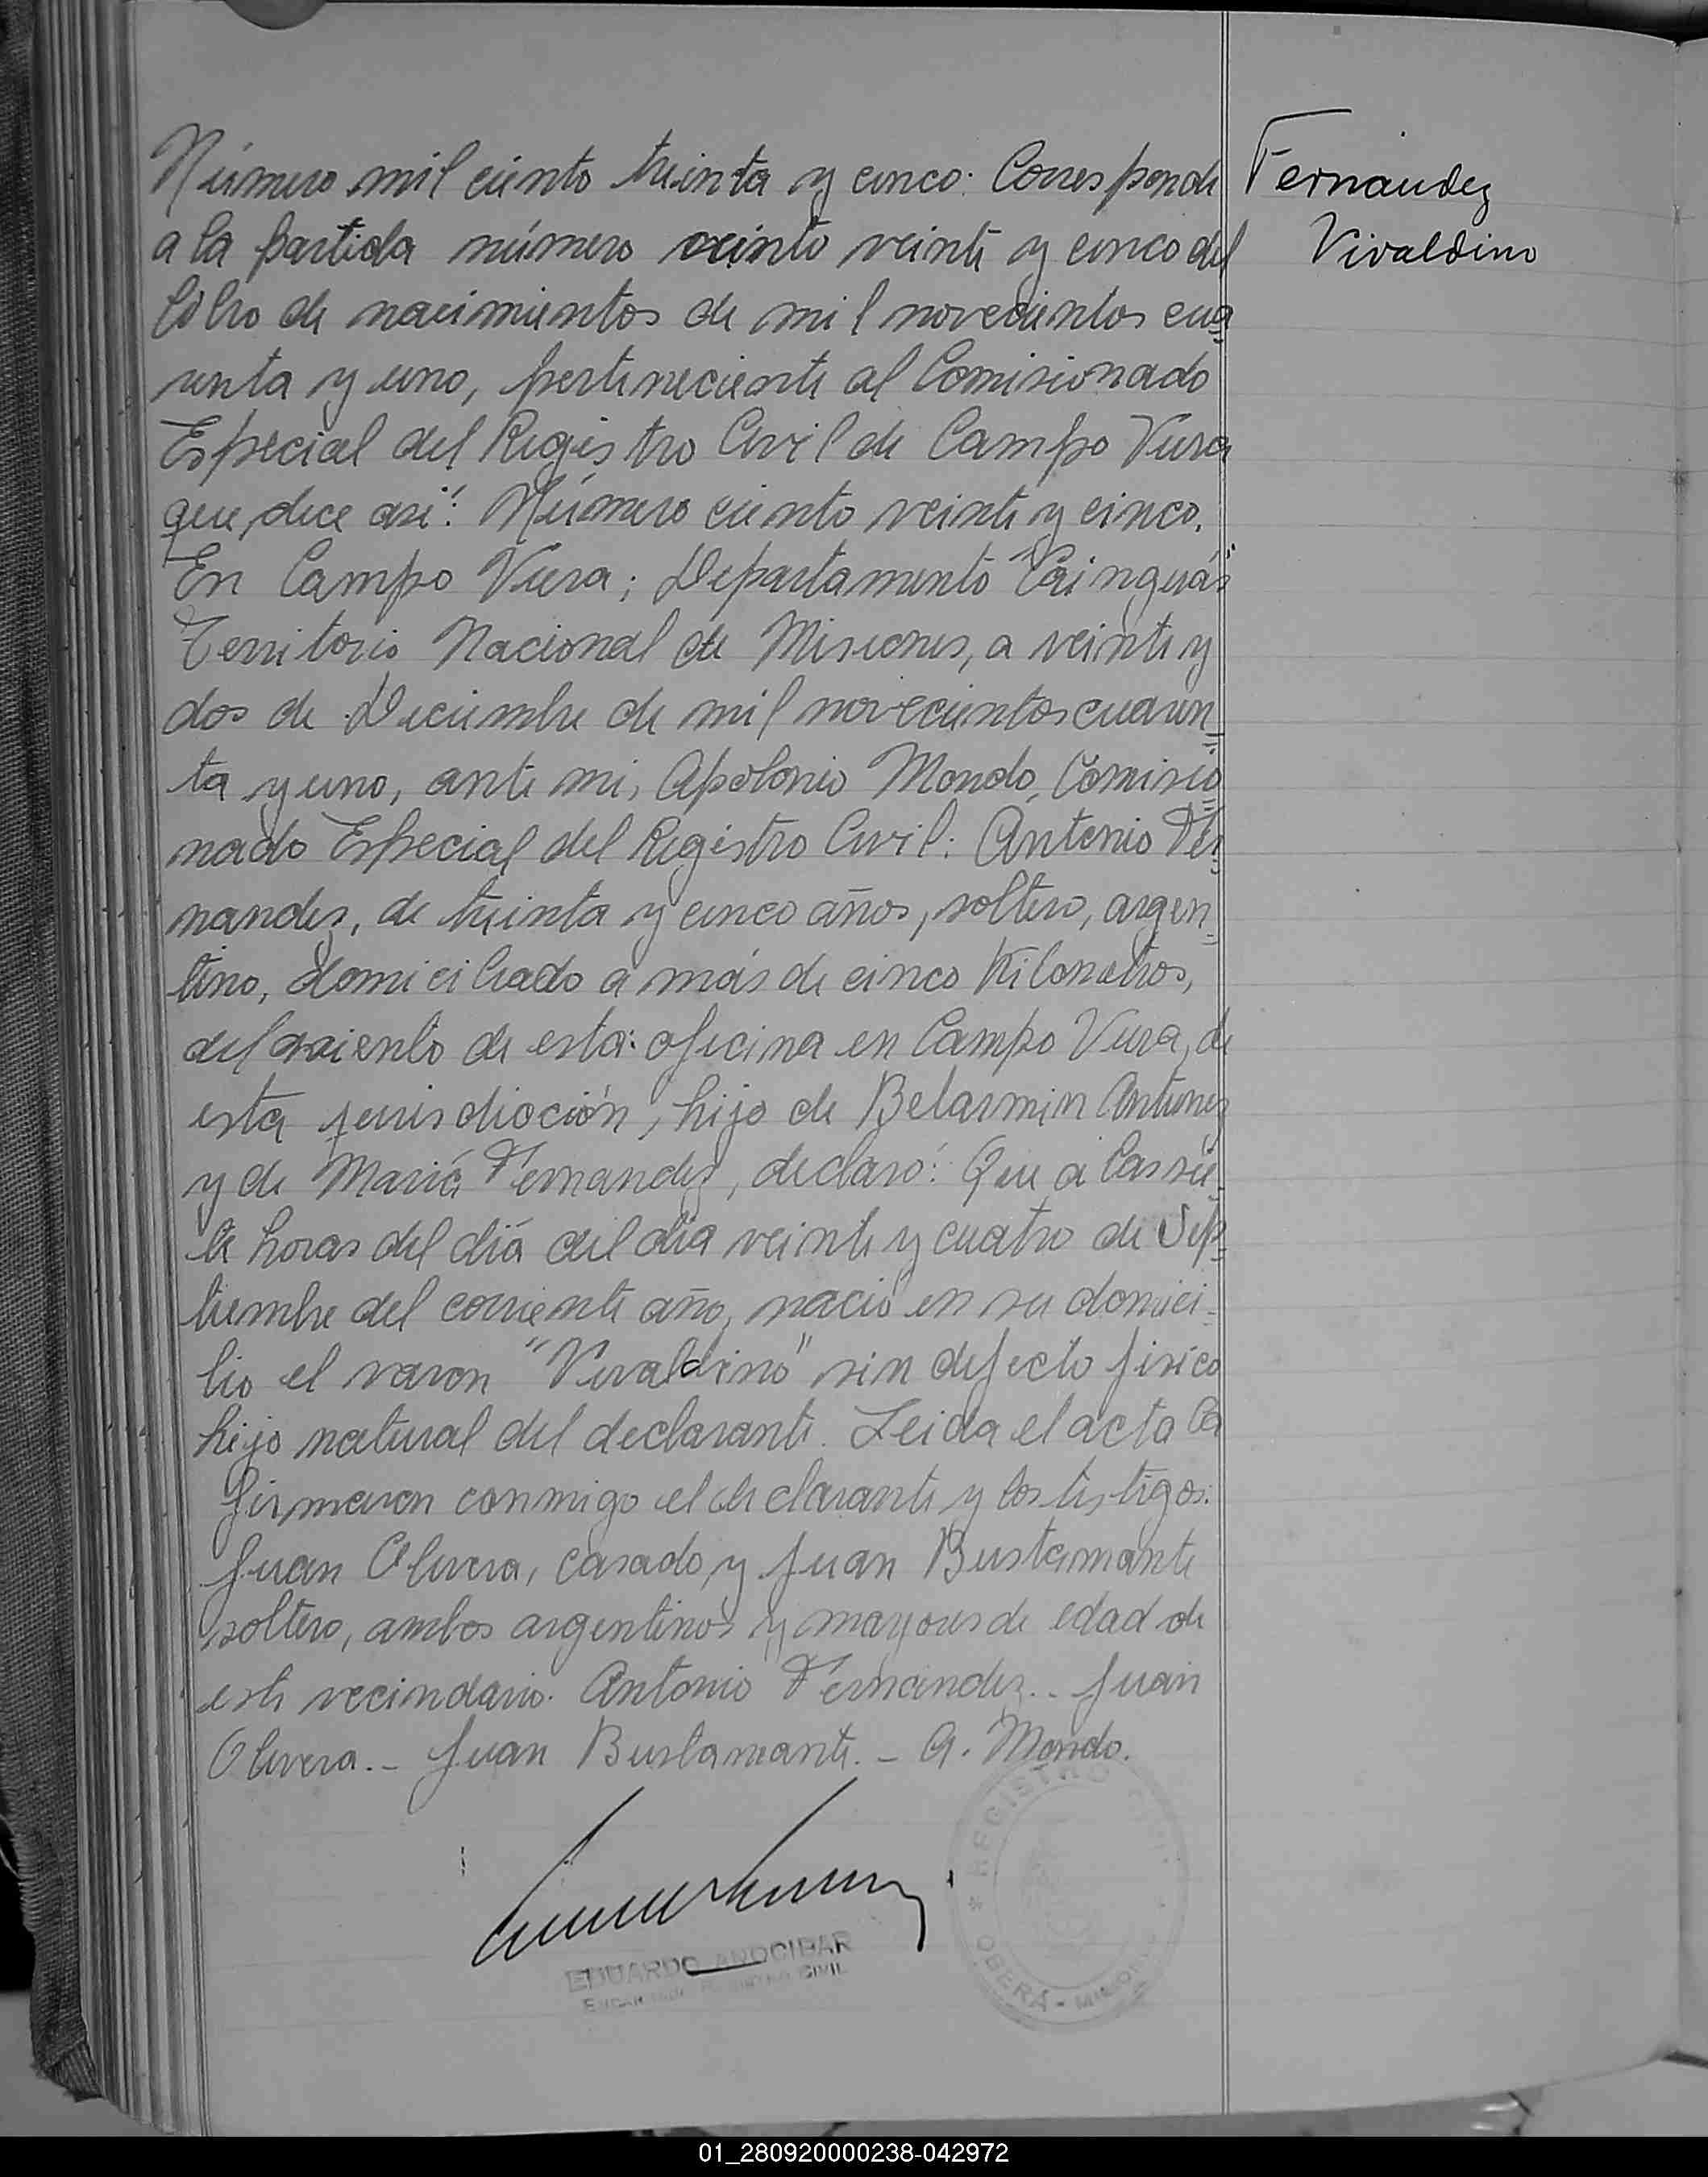 Número mil ciento treinta y cinco: Corresponde
a la partida número ciento veinte y cinco del
libro de nacimientos de mil novecientos cua
renta y uno, perteneciente al Comisionado
Especial del Registro Civil de Campo Viera
que dice así: Número ciento veinte y cinco.
En Campo Viera; Departamento "Cainguás"
Territorio Nacional de Misiones, a veinte y
dos de Diciembre de mil novecientos cuaren
ta y uno, ante mi, Apolonio Mondo, Comisio
nado Especial del Registro Civil: Antonio Fer
nandez, de treinta y cinco años, soltero, argen
tino, domiciliado a más de cinco Kilometros,
del asiento de esta: oficina en Campo Viera, de
esta jurisdicción, hijo de Belarmin Antunes
y de María Fernandez, declaró: Que a las sie
te horas del día del día veinte y cuatro de Sep
tiembre del corriente año, nació en su domici
lio el varon "Vivaldino" sin defecto fisico
hijo natural del declarante. Leida el acta la
firmaron conmigo el declarante y los testigos:
Juan Olivera, casado y Juan Bustamante
soltero, ambos argentinos y mayores de edad de
este vecindario. Antonio Fernandez.. Juan
Olivera.- Juan Bustamante.- A. Mondo.
Fernandez
Vivaldino
EDUARDO ANOCIBAR
REGISTRO CIVIL
REGISTRO CIVIL
OBERÁ - MISIONES
01_280920000238-042972